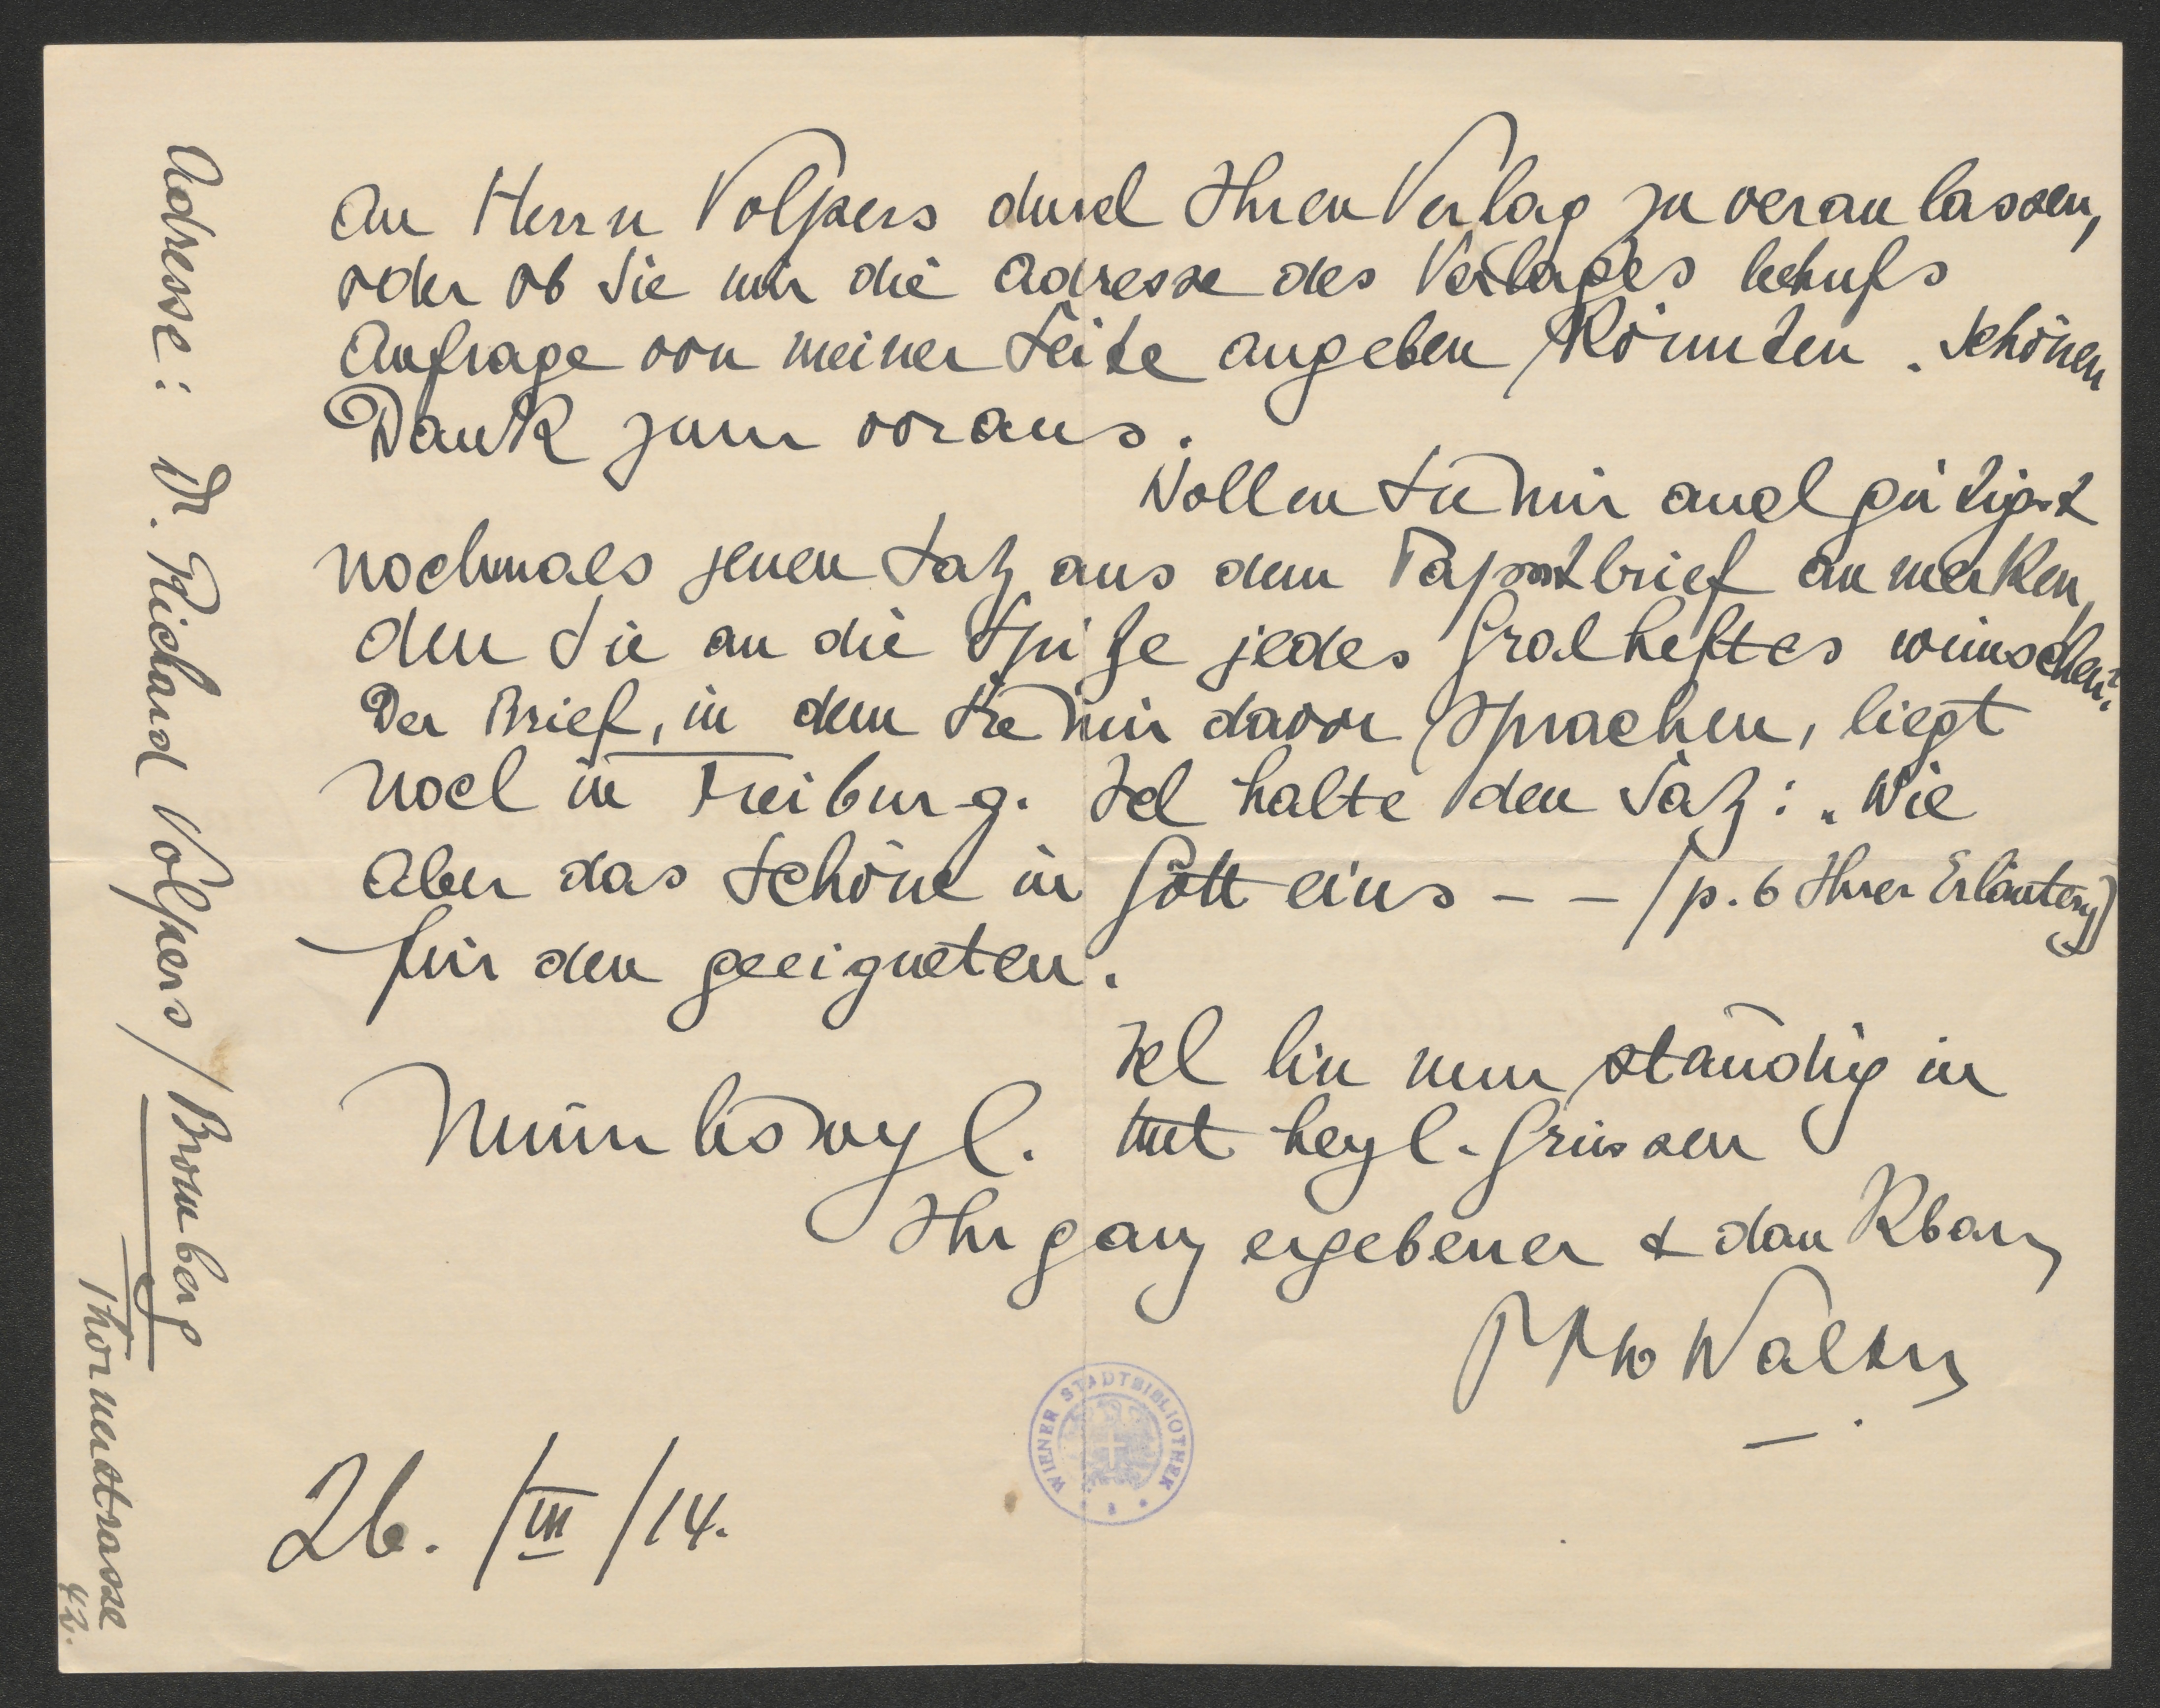 an Herrn Volpers durch Ihren Verlag zu veranlassen,
oder ob Sie mir die Adresse des Verlages behufs
Anfrage von meiner Seite angeben könnten. Schönen
Dank zum voraus.
Wollen Sie mir auch gütigst
nochmals jenen Satz aus dem Papstbrief anmerken,
den Sie an die Spitze jedes Gralheftes wünschen?
Der Brief, in dem Sie mir davon sprachen, liegt
noch in Freiburg. Ich halte den Satz: „Wie
aber das Schöne in Gott eins - - (p. 6 Ihrer Erläuterg)
für den geeigneten.
Ich bin nun ständig in
Muri bei
mit herzl. Grüssen
Ihr ganz ergebener & dankbarer
Walter
26. /III /14.
Adresse: Dr. Richard Volpers / Bromberg
Thornerstrasse
42.
WIENER STADTBIBLIOTHEK